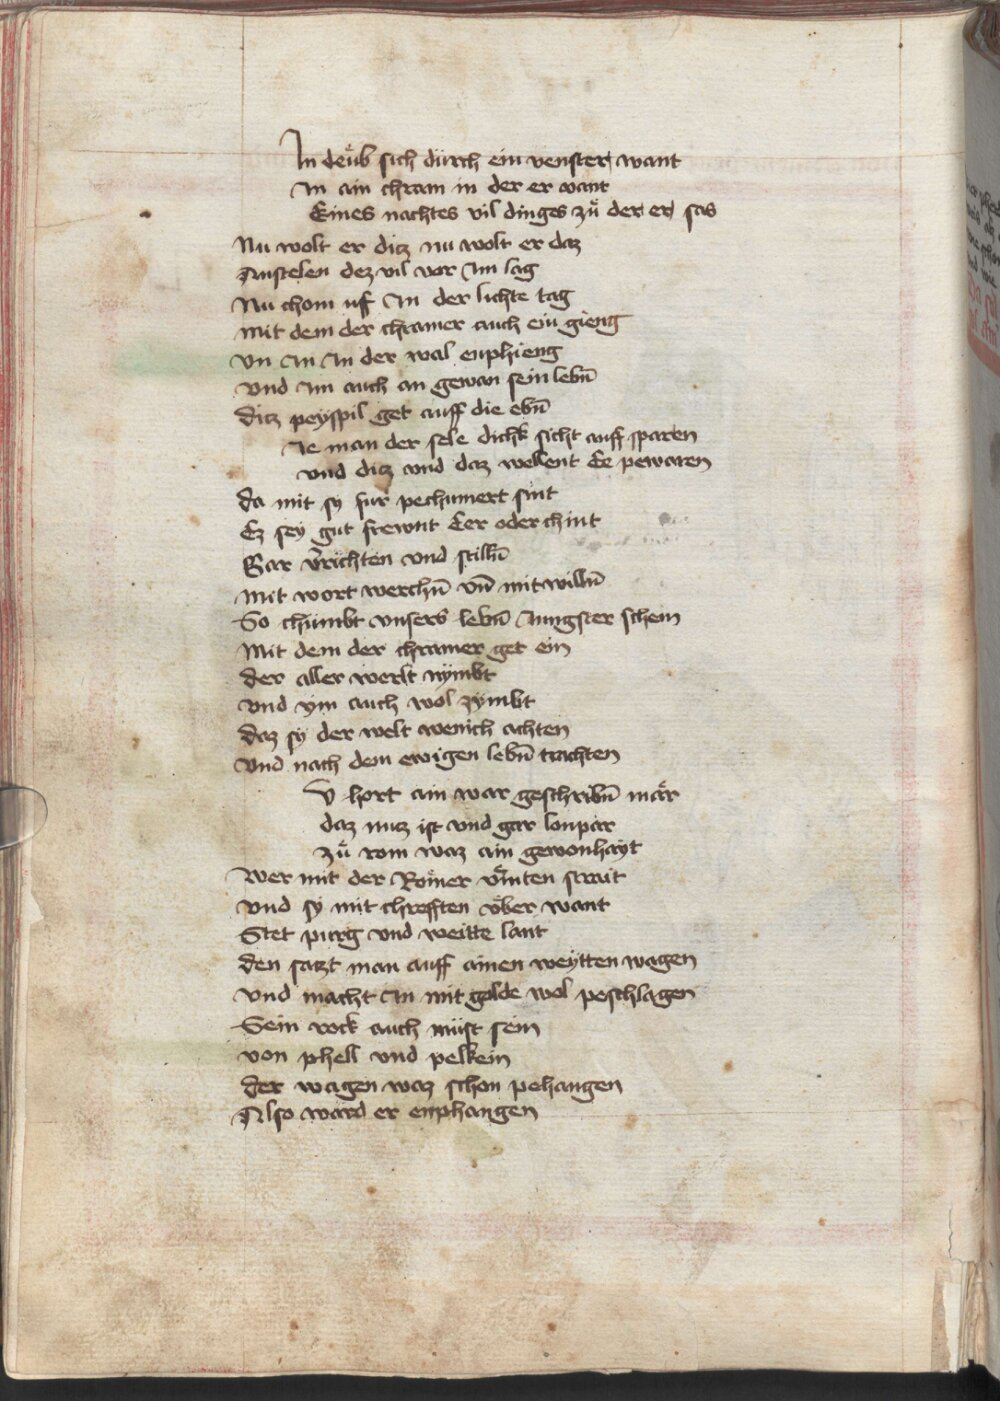 In deub sich durch ein venster want
In ain chram in der er want
Eines nachtes vil dinges zů der er sas
Nu wolt er ditz nu wolt er daz
Austelen dez vil vor Im lag
Nu chom uf In der lichte tag
Mit dem der chramer auch ein gieng
Vn In In der wal enphieng
Vnd Im auch an gewan sein lebn̄
Ditz peyspil get auff die ebn̄
Ie man der sele sicht auff sparen
Vnd ditz und daz wellent Ee pewaren
Da mit sy fur pechumert sint
Ez sey gut frewnt Eer oder chint
Gar v̄richten vnd stilln̄
Mit wort werchn̄ vn̄ mit willn̄
So chumbt vnsers lebn̄ Iungster schein
Mit dem der chramer get ein
der aller werlt nymbt
Vnd ym auch wol zymbt
Daz sy der welt wenich achten
Vnd nach dem ewigen lebn̄ trachten
V hort ain war geschribn̄ mär
daz nutz ist vnd gar lonpär
Zů rom waz ain gewonhayt
Wer mit der Romer streit
Vnd sy mit chrefften vber want
Stet purg vnd weitte lant
Den satzt man auff ainen weytten wagen
Vnd macht In mit golde wol peschlagen
Sein rock auch müst sein
Von phell vnd pelkein
Der wagen waz schon pehangen
Also ward er enphangen